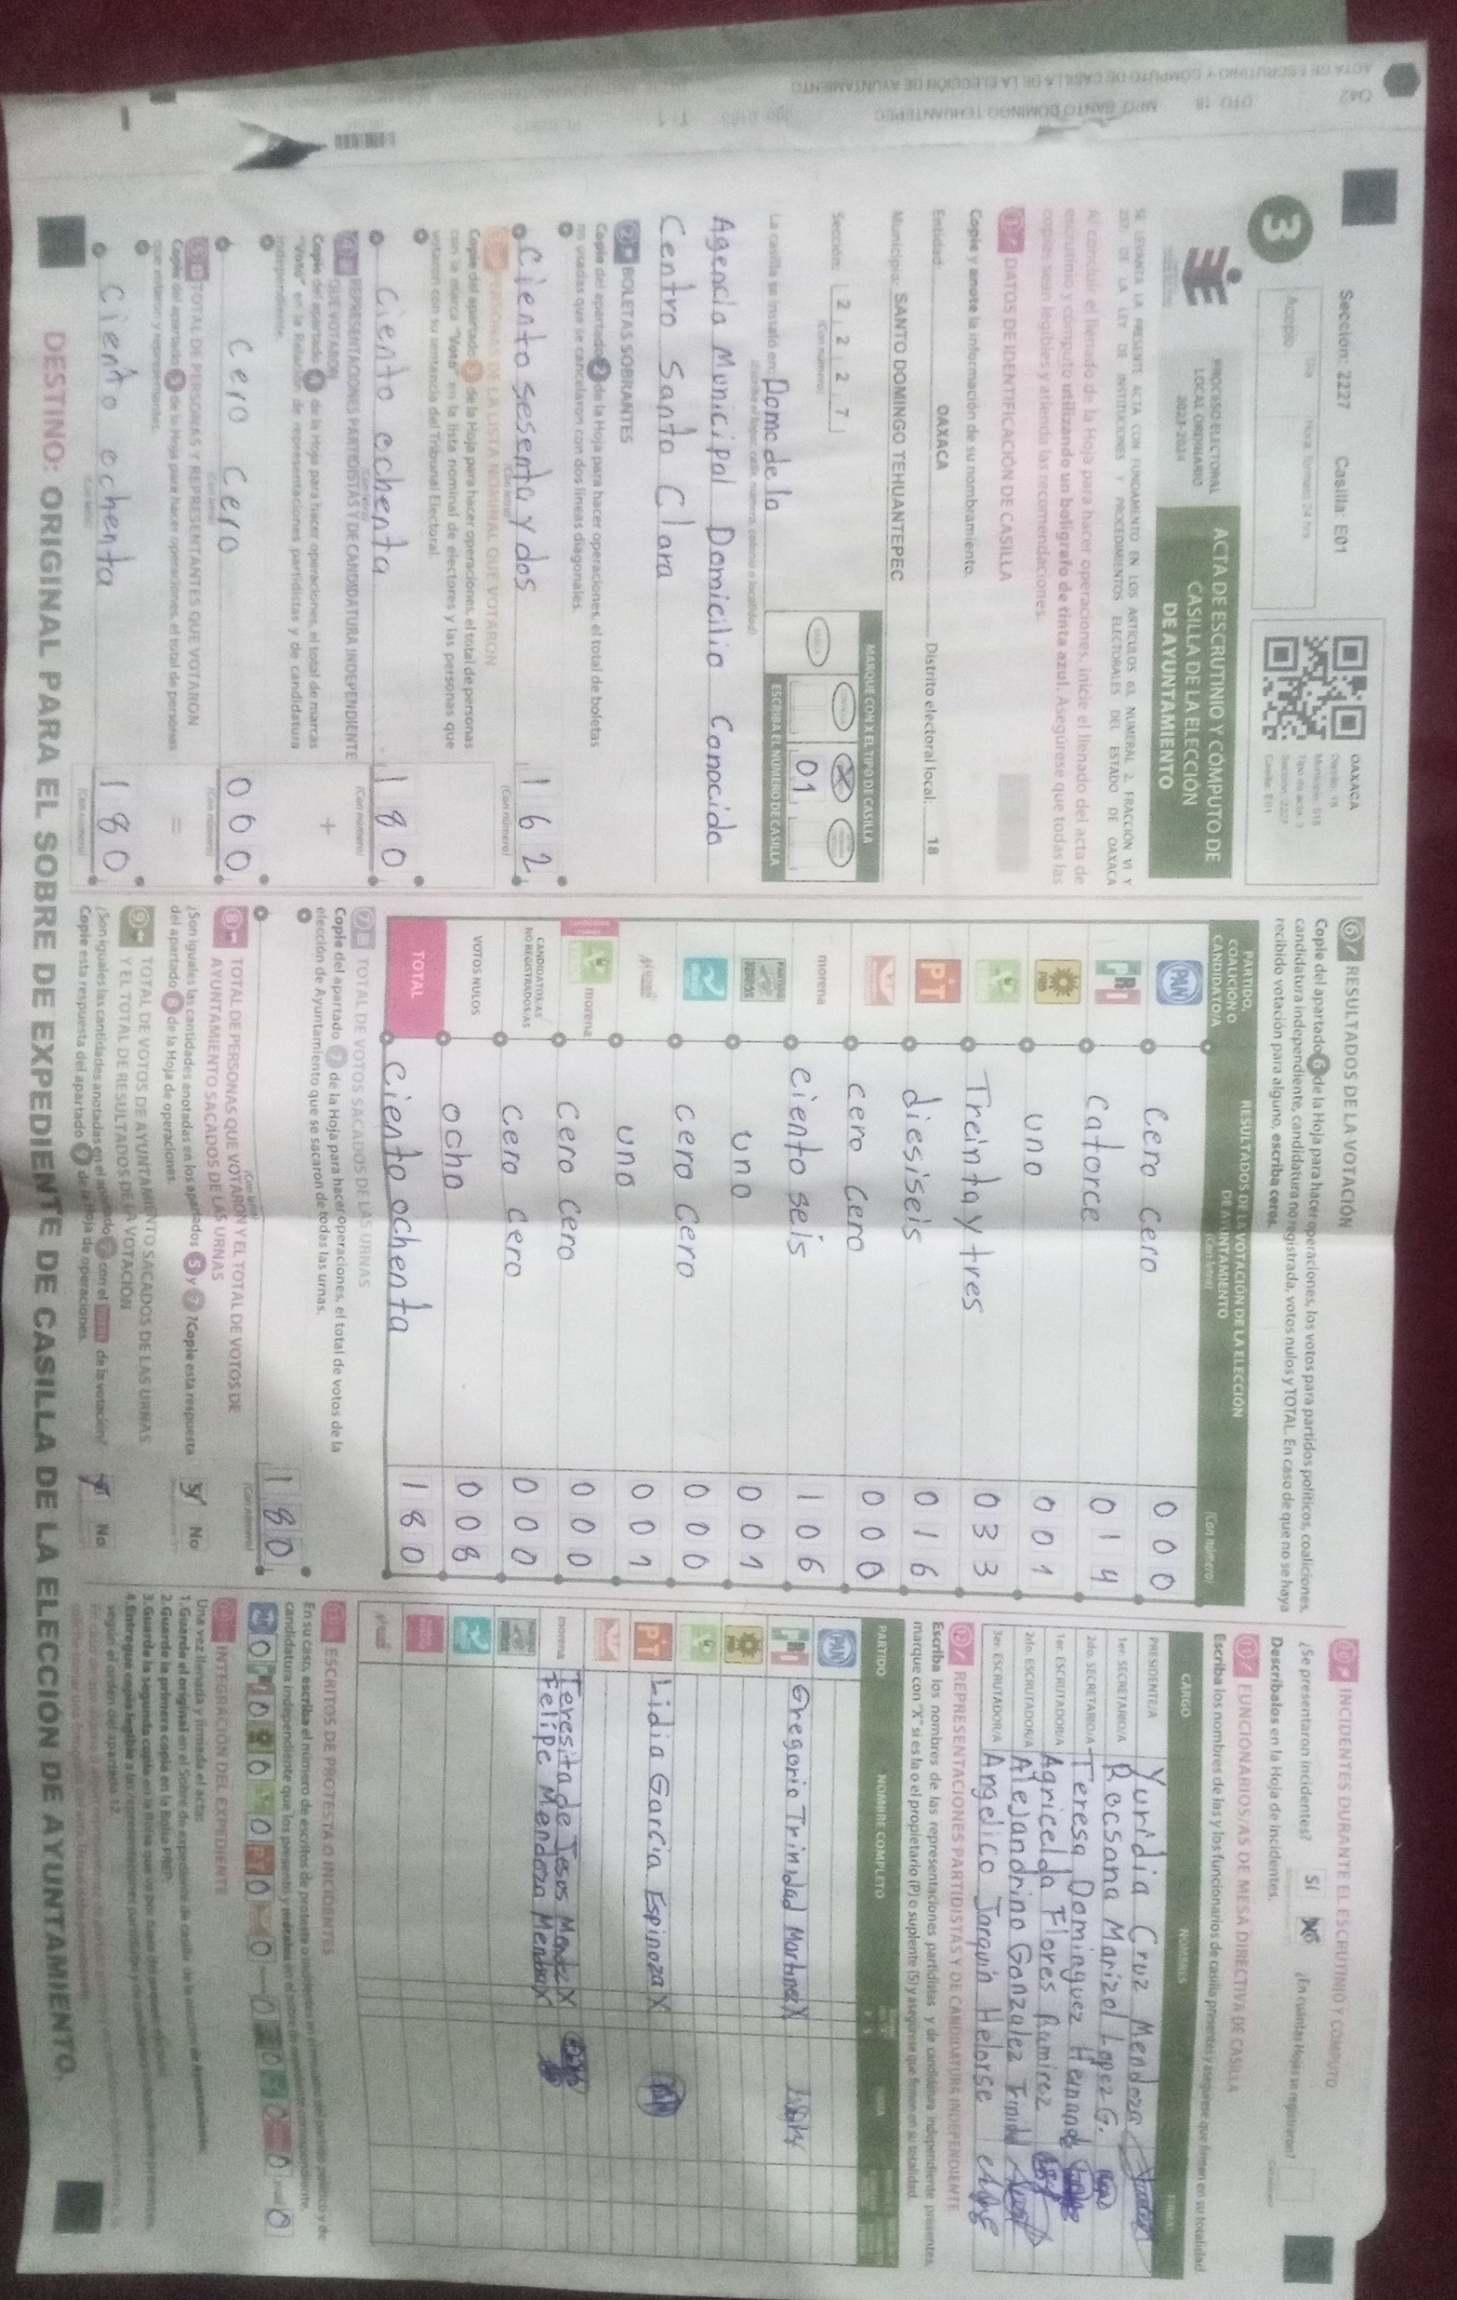 Sección: 2227 Casilla: E01
3
Acopio
OAXACA
PROCESO ELECTORAL
LOCAL ORDINARIO
2023-2024
ACTA DE ESCRUTINIO Y CÓMPUTO DE
CASILLA DE LA ELECCIÓN
DE AYUNTAMIENTO
SE LEVANTA LA PRESENTE ACTA CON FUNDAMENTO EN LOS ARTÍCULOS 63, NUMERAL 2, FRACCIÓN VI Y
237, DE LA LEY DE INSTITUCIONES Y PROCEDIMIENTOS ELECTORALES DEL ESTADO DE OAXACA
Al concluir el llenado de la Hoja para hacer operaciones, inicie el llenado del acta de
escrutinio y cómputo utilizando un bolígrafo de tinta azul. Asegúrese que todas las
copias sean legibles y atienda las recomendaciones.
1 DATOS DE IDENTIFICACIÓN DE CASILLA
Copie y anote la información de su nombramiento.
Entidad: OAXACA Distrito electoral local: 18
Municipio: SANTO DOMINGO TEHUANTEPEC
Sección: 2 2 2 7
(Con número)
MARQUE CON X EL TIPO DE CASILLA
01
ESCRIBA EL NÚMERO DE CASILLA
La casilla se instaló en: Domo de la
Agencia Municipal Domicilio Conocido
Centro Santa Clara
2 BOLETAS SOBRANTES
Copie del apartado 2 de la Hoja para hacer operaciones, el total de boletas
no usadas que se cancelaron con dos líneas diagonales.
Ciento sesenta y dos 162
(Con número)
PERSONAS DE LA LISTA NOMINAL QUE VOTARON
Copie del apartado 3 de la Hoja para hacer operaciones, el total de personas
con la marca "Votó" en la lista nominal de electores y las personas que
votaron con su sentencia del Tribunal Electoral.
Ciento ochenta 180
(Con número)
REPRESENTACIONES PARTIDISTAS Y DE CANDIDATURA INDEPENDIENTE
QUE VOTARON
Copie del apartado 4 de la Hoja para hacer operaciones, el total de marcas
"Votó" en la Relación de representaciones partidistas y de candidatura
independiente.
Cero Cero 000
5 TOTAL DE PERSONAS Y REPRESENTANTES QUE VOTARON
Copie del apartado 5 de la Hoja para hacer operaciones, el total de personas
que votaron y representantes.
Ciento ochenta 180
6 RESULTADOS DE LA VOTACIÓN
Copie del apartado 6 de la Hoja para hacer operaciones, los votos para partidos políticos, coaliciones,
candidatura independiente, candidatura no registrada, votos nulos y TOTAL. En caso de que no se haya
recibido votación para alguno, escriba ceros.
PARTIDO, COALICIÓN O CANDIDATO/A
RESULTADOS DE LA VOTACIÓN DE LA ELECCIÓN
DE AYUNTAMIENTO
(Con letra) (Con número)
PAN Cero Cero 000
PRI Catorce 014
PRD uno 001
Treinta y tres 033
PT diesiseis 016
Cero Cero 000
morena ciento seis 106
uno 001
Cero Cero 000
uno 001
morena Cero Cero 000
CANDIDATOS/AS NO REGISTRADOS/AS Cero Cero 000
VOTOS NULOS ocho 008
TOTAL Ciento ochenta 180
7 TOTAL DE VOTOS SACADOS DE LAS URNAS
Copie del apartado 7 de la Hoja para hacer operaciones, el total de votos de la
elección de Ayuntamiento que se sacaron de todas las urnas.
180
(Con letra) (Con número)
8 TOTAL DE PERSONAS QUE VOTARON Y EL TOTAL DE VOTOS DE
AYUNTAMIENTO SACADOS DE LAS URNAS
¿Son iguales las cantidades anotadas en los apartados 5 y 7? Copie esta respuesta
del apartado 8 de la Hoja de operaciones. Sí No
9 TOTAL DE VOTOS DE AYUNTAMIENTO SACADOS DE LAS URNAS
Y EL TOTAL DE RESULTADOS DE LA VOTACIÓN
¿Son iguales las cantidades anotadas en el apartado 7 con el TOTAL de la votación?
Copie esta respuesta del apartado 9 de la Hoja de operaciones. No
INCIDENTES DURANTE EL ESCRUTINIO Y CÓMPUTO
¿Se presentaron incidentes? Sí No ¿En cuántas Hojas se registraron?
Descríbalos en la Hoja de incidentes.
FUNCIONARIOS/AS DE MESA DIRECTIVA DE CASILLA
Escriba los nombres de las y los funcionarios de casilla presentes y asegúrese que firmen en su totalidad.
CARGO NOMBRES FIRMAS
PRESIDENTE/A Yuridia Cruz Mendoza
1er. SECRETARIO/A Rocsana Marizol Lopez G.
2do. SECRETARIO/A Teresa Dominguez Hernandez
1er. ESCRUTADOR/A Agricelda Flores Ramirez
2do. ESCRUTADOR/A Alejandrino Gonzalez Trinidad
3er. ESCRUTADOR/A Angelico Jarquin Helorse
12 REPRESENTACIONES PARTIDISTAS Y DE CANDIDATURA INDEPENDIENTE
Escriba los nombres de las representaciones partidistas y de candidatura independiente presentes,
marque con "X" si es la o el propietario (P) o suplente (S) y asegúrese que firmen en su totalidad.
PARTIDO NOMBRE COMPLETO
PAN
PRI Gregorio Trinidad Martinez X
PRD
PT Lidia Garcia Espinoza X
morena Teresita de Jesus Mendez X
Felipe Mendoza Mendoza X
ESCRITOS DE PROTESTA O INCIDENTES
En su caso, escriba el número de escritos de protesta o incidentes
INTEGRACIÓN DEL EXPEDIENTE
Una vez llenada y firmada el acta:
DESTINO: ORIGINAL PARA EL SOBRE DE EXPEDIENTE DE CASILLA DE LA ELECCIÓN DE AYUNTAMIENTO.